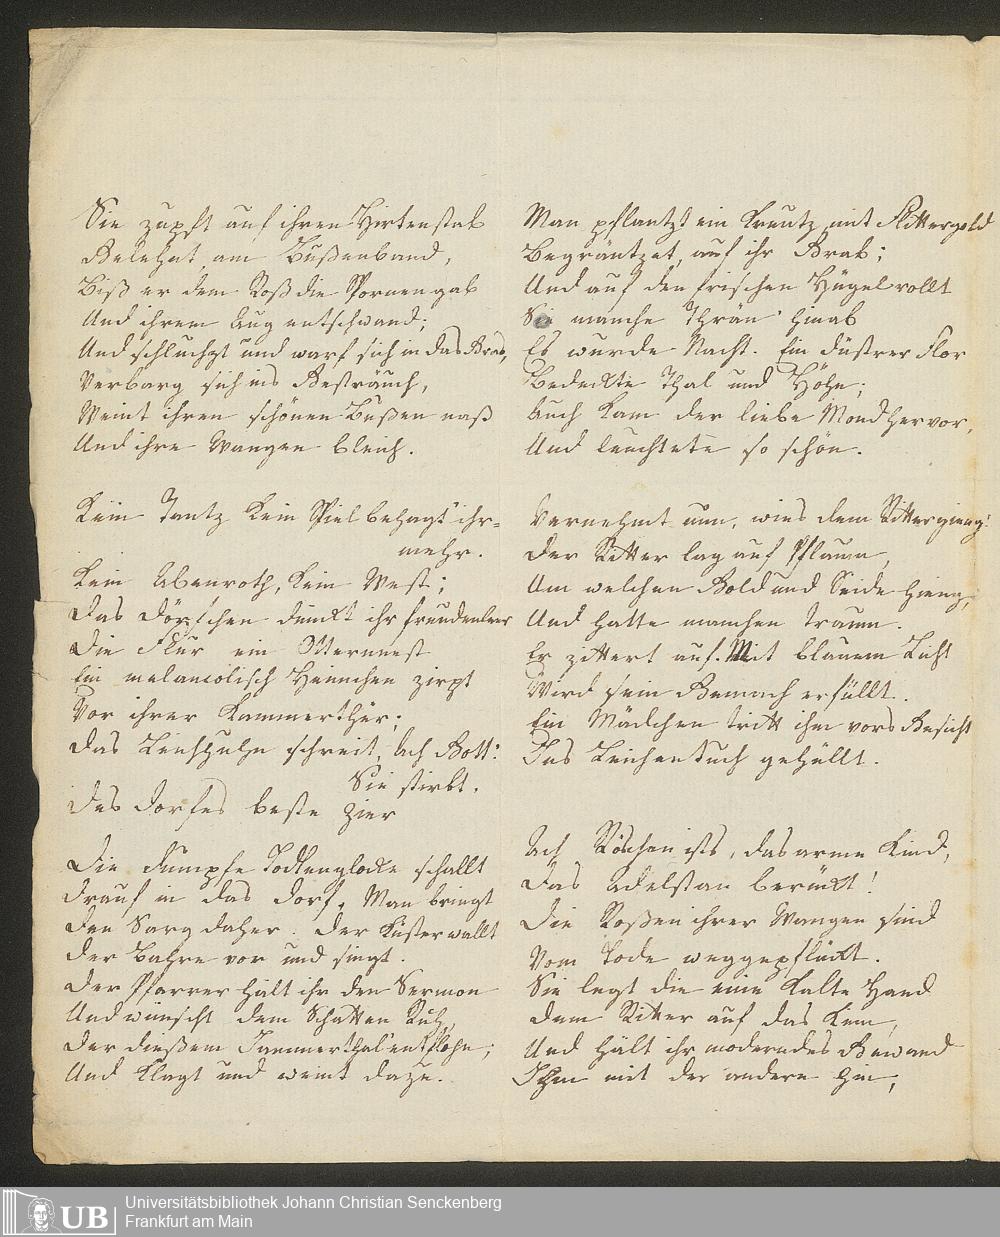 Sie zupft auf ihren Hirtenstab
Belehnt am Bußenband,
Biß er dem Roß die Spornen gab
Und ihrem Aug entschwand;
Und schluchzt und warf sich in das Gras,
Verbarg sich ins Gesträuch,
Weint ihren schönen Bußen naß
Und ihre Wangen bleich.
Kein Tantz kein Spiel behagt ihr
mehr.
Kein Abenroth, kein West;
Das Dörfchen dünckt ihr freudenleer
Die Flur ein Otternnest
Ein melancolisch Heimchen zirpt
Vor ihrer Kammerthür;
Das Leichhuhn schreit, Ach Gott!
Sie stirbt,
Des Dorfes beste Zier
Die dumpfe Todtenglocke schallt
Drauf in das Dorf. Man bringt
Den Sarg daher. Der Küster wallt
Der Bahre vor und singt.
Der Pfarrer hält ihr den Sermon
Und wünscht dem Schatten Ruh,
Der dießem Jammerthal entflohn;
Und klagt und weint dazu.
Man pflantzt ein Kreutz, mit Flittergold
Begräntzet, auf ihr Grab;
Und auf den frischen Hügel rollt
So manche Thrän' hinab
Es wurde Nacht. Ein düstrer Flor
Bedeckte Thal und Höhn;
Auch kam der liebe Mond hervor,
Und leuchtete so schön.
Vernehmt nun, wies dem Ritter gieng!
Der Ritter lag auf Pflaum,
Um welchen Gold und Seide hieng,
Und hatte manchen Traum.
Er zittert auf. Mit blauem Licht
Wird sein Gemach erfüllt.
Ein Mädchen tritt ihm vors Gesicht
Ins Leichentuch gehüllt.
Ach Röschen ists, das arme Kind,
Das Adelstan berückt!
Die Roßen ihrer Wangen sind
Vom Tode weggepflückt.
Sie legt die eine kalte Hand
Dem Ritter auf das Kinn,
Und hält ihr moderndes Gewand
Ihm mit der andern hin,
UB
Universitätsbibliothek Johann Christian Senckenberg
Frankfurt am Main